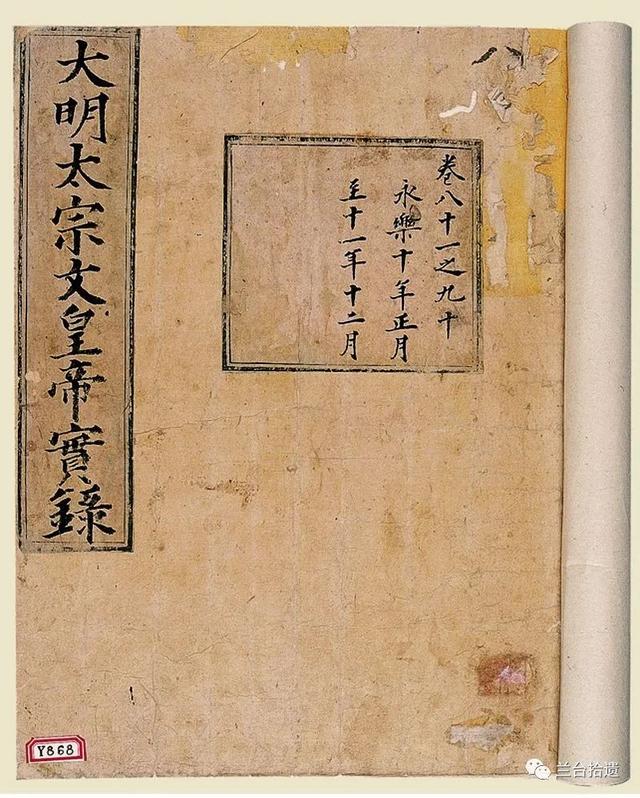 大明太宗文皇帝實錄
卷八十一之九十
永樂十年正月
至十一年十二月
Y868
兰台拾遗